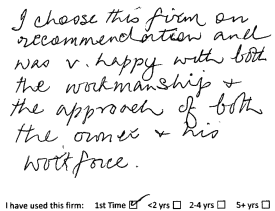 I choose this firm on
recommendation and
was v. happy with both
the workmanship &
the approach of both
the owner & his
workforce.
I have used this firm: 1st Time ☑ <2 yrs ☐ 2-4 yrs ☐ 5+ yrs ☐